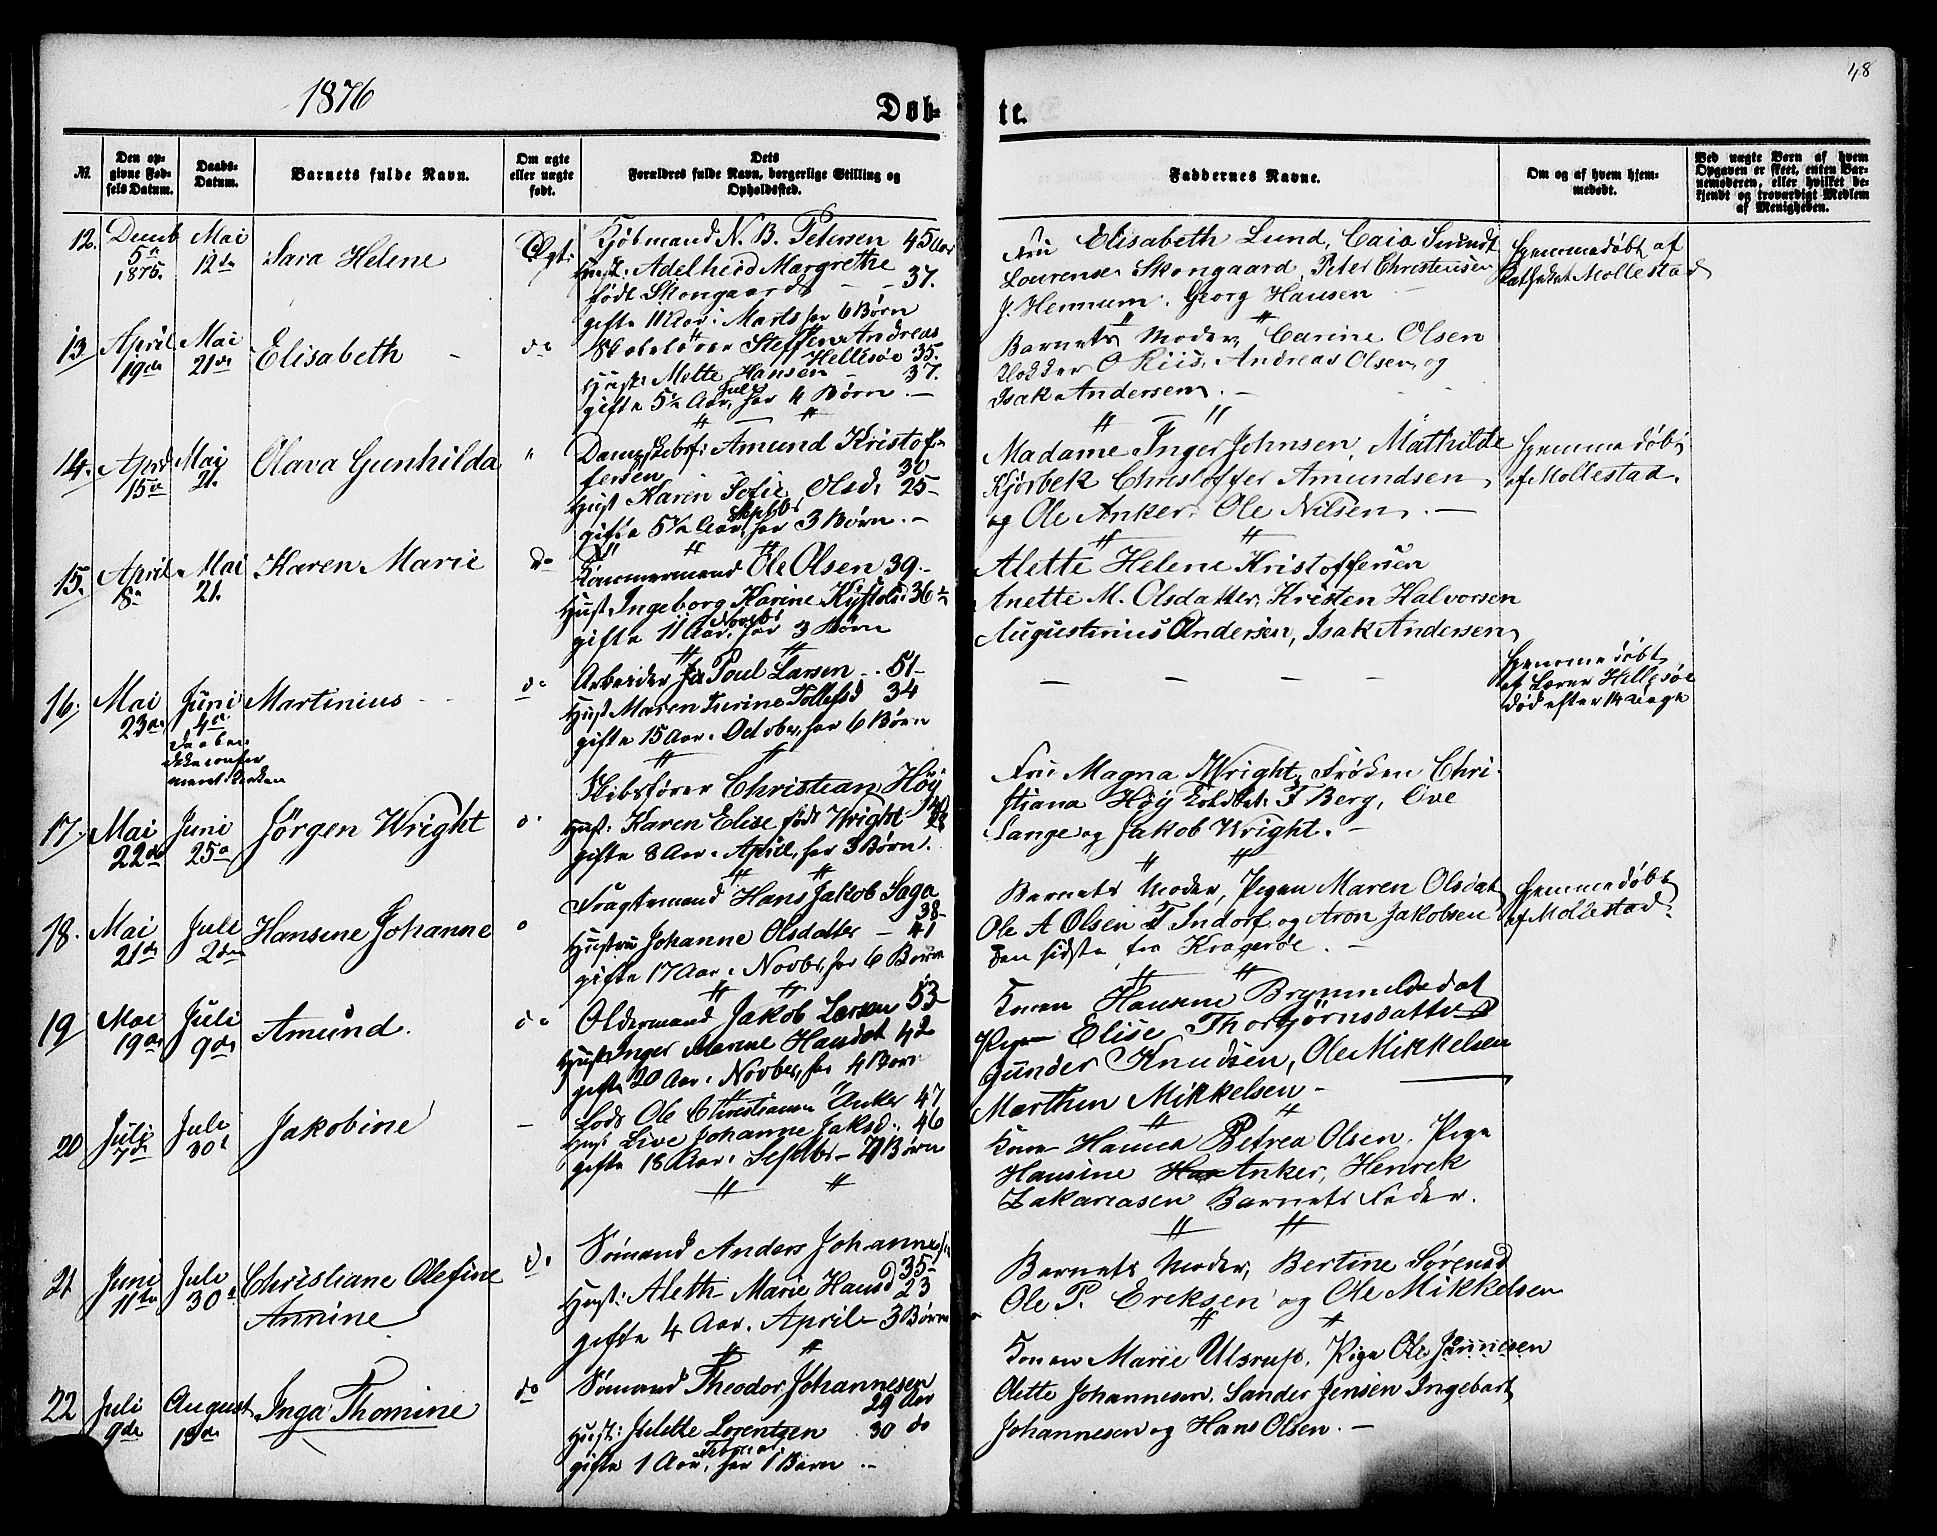 1876
Døb-
te.
48
№.
Den op-
givne Fød-
sels Datum.
Daabs-
Datum.
Barnets fulde Navn.
Om ægte
eller uægte
født.
Dets
Forældres fulde Navn, borgerlige Stilling og
Opholdssted.
Faddernes Navne.
Om og af hvem hjem-
medøbt.
Ved uægte Børn af hvem
Opgaven er skeet, enten Bar-
nemoderen, eller hvilket be-
kjendt og troværdigt Medlem
af Menigheden.
12.
Decemb
5te
1875.
Mai
12te
Sara Helene
Ægt:
Kjøbmand N. B. Petersen 45 Aar
Hust: Adelheid Margrethe
født Skongaard - - 37.
gifte 11 Aar i Marts har 6 Børn
Fru Elisabeth Lund, Caia
Lourense Skongaard, Peter Christensen
J. Hermum. Georg Hansen
Hjemmedøbt af
Mollestad
13
April
19de
Mai
21de
Elisabeth
do
Steffen Andreas
Hellesøe 35.
Hust: Mette Hansen 37.
gifte 5½ Aar, Juli har 4 Børn. -
Barnets Moder, Carine Olsen
O Riis, Andreas Olsen, og
Isak Andersen. -
14.
April
15de
Mai
21.
Olava Gunhilda
"
Amund Kristof-
fersen 30
Hust Karen Sofie Olsd: 25-
gifte 5½ Aar, Septbr har 3 Børn. -
Madame Inger Johnsen, Mathilde
Kjørbek Christoffer Amundsen
og Ole Anker. Ole Nilsen. -
Hjemmedøbt
af Mollestad.
15.
April
18.
Mai
21.
Karen Marie
do
Tømmermand Ole Olsen 39.-
Hust Ingeborg Karine 36½
gifte 11 Aar, Novbr har 3 Børn
Alette Helene Kristoffersen
Anette M. Olsdatter, Kristen Halvorsen
Augustinius Andersen, Isak Andersen,
16.
Mai
23de
Juni
4de
Martinius
do
Arbeider Poul Larsen .. 51-
Hust Maren Tollefsd 34
gifte 15 Aar i October, har 6 Børn
- - - -
Hjemmedøbt
af Lærer Hellesøe
død efter 14 Dage
17.
Mai
22de
Juni
25de
Jørgen Wright
do
Skibsfører Christian Höy
Hust: Karen Elise født Wright
gifte 8 Aar i April, har 3 Børn.
Fru Magna Wright, Frøken Chri-
stiana Höy F Berg, Ove
Lange og Jakob Wright. -
18.
Mai
21de
Juli
2den
Hansine Johanne
do
Fragtemand Hans Jakob Saga
38-
Hustru Johanne Olsdatter - 41
gifte 17 Aar i Novbr, har 6 Børn
Barnets Moder, Pigen Maren Olsdat
Ole A Olsen T Indorf og Aron Jakobsen
den sidste fra Kragerøe. -
Hjemmedøbt
af Mollestad.
19
Mai
19de
Juli
9de
Amund.
do
Oldermand Jakob Larsen 53-
Hust Inger Marine Hansdt 42
gifte 20 Aar i Novber, har 4 Børn
Konen Hansine Brynnildsdat
Pigen Elise Thorbjørnsdatter
Gunder Knudsen, Ole Mikkelsen
Marthin Mikkelsen -
20
Juli
7de
Juli
30te
Jakobine
-
Lods Ole Christiansen Anker 47
Hust Live Johanne Jaksd: 46
gifte 18 Aar i Septbr - 7 Børn
Kone Hanna Petrea Olsen. Pige
Hansine Anker, Henrik
Zakariasen Barnets Fader.
21
Juni
11te
Juli
30te
Christiane Olefine
Annine
do
Sømand Anders Johannesen
35-
Hust: Aleth Marie Hansd 23
gifte 4 Aar. April - 3 Børn
Barnets Moder, Bertine Sørensd
Ole P. Eriksen og Ole Mikkelsen
22
Juli
9de
August
13de
Inga Thomine
do
Sømand Theodor Johannesen
29 Aar
Hust: Julette Lorentzen 30 do
gifte 1 Aar, Februar. har 1 Børn -
Konen Marie Ulsrup, Pige
Olette Johannesen. Sander Jensen Ingebart
Johannesen og Hans Olsen. -